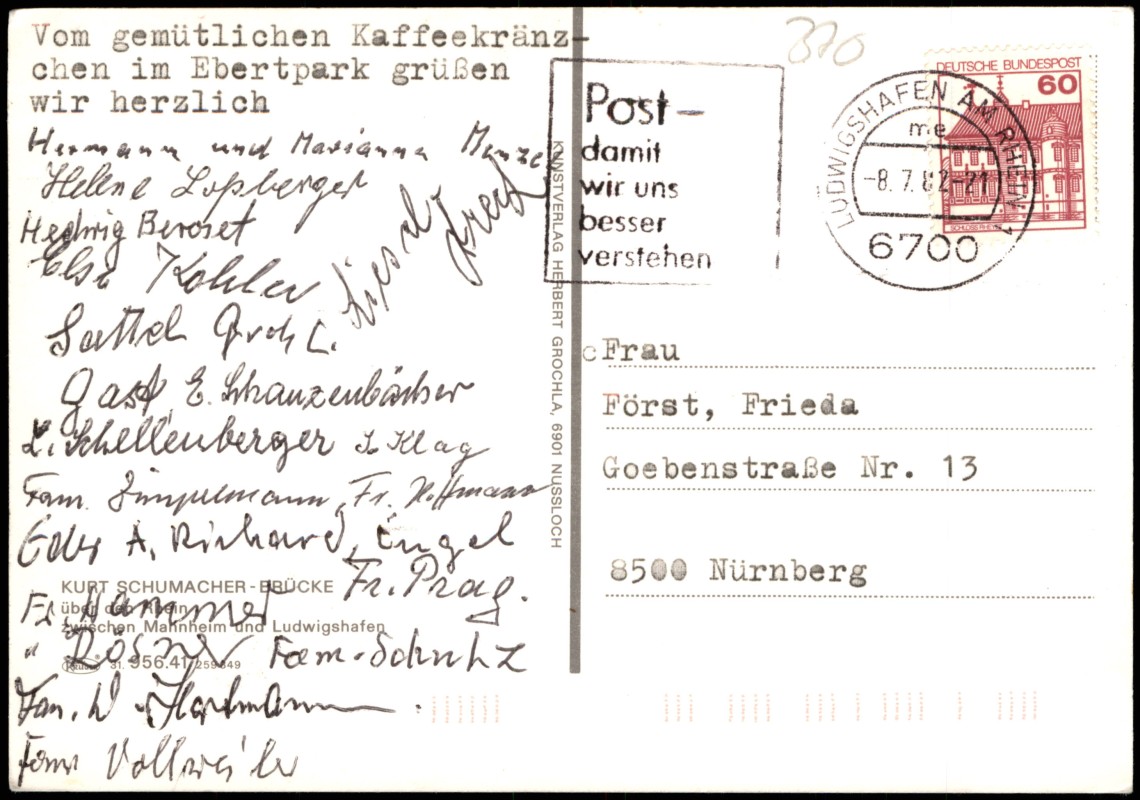 Vom gemütlichen Kaffeekränz-
chen im Ebertpark grüßen
wir herzlich
Hermann und Marianna Menzel
Helene Loßberger
Hedwig Beroset
Elsa Kohler
Liesel
Sattel
Gast, E. Schanzenbächer
L. Schellenberger J. Klag
Fam. Fr. Hoffmann
A. Richard, Engel
Fr. Prag.
Fr. Hammer
" Rösner Fam. Schulz
Fam. W. Hartmann
Fam Vollweiler
KURT SCHUMACHER-BRÜCKE
über den Rhein
zwischen Mannheim und Ludwigshafen
31. 956.41
KUNSTVERLAG HERBERT GROCHLA, 6901 NUSSLOCH
370
Post-
damit
wir uns
besser
verstehen
LUDWIGSHAFEN AM RHEIN 1
me
-8.7.82-21
6700
DEUTSCHE BUNDESPOST
60
Frau
Först, Frieda
Goebenstraße Nr. 13
8500 Nürnberg